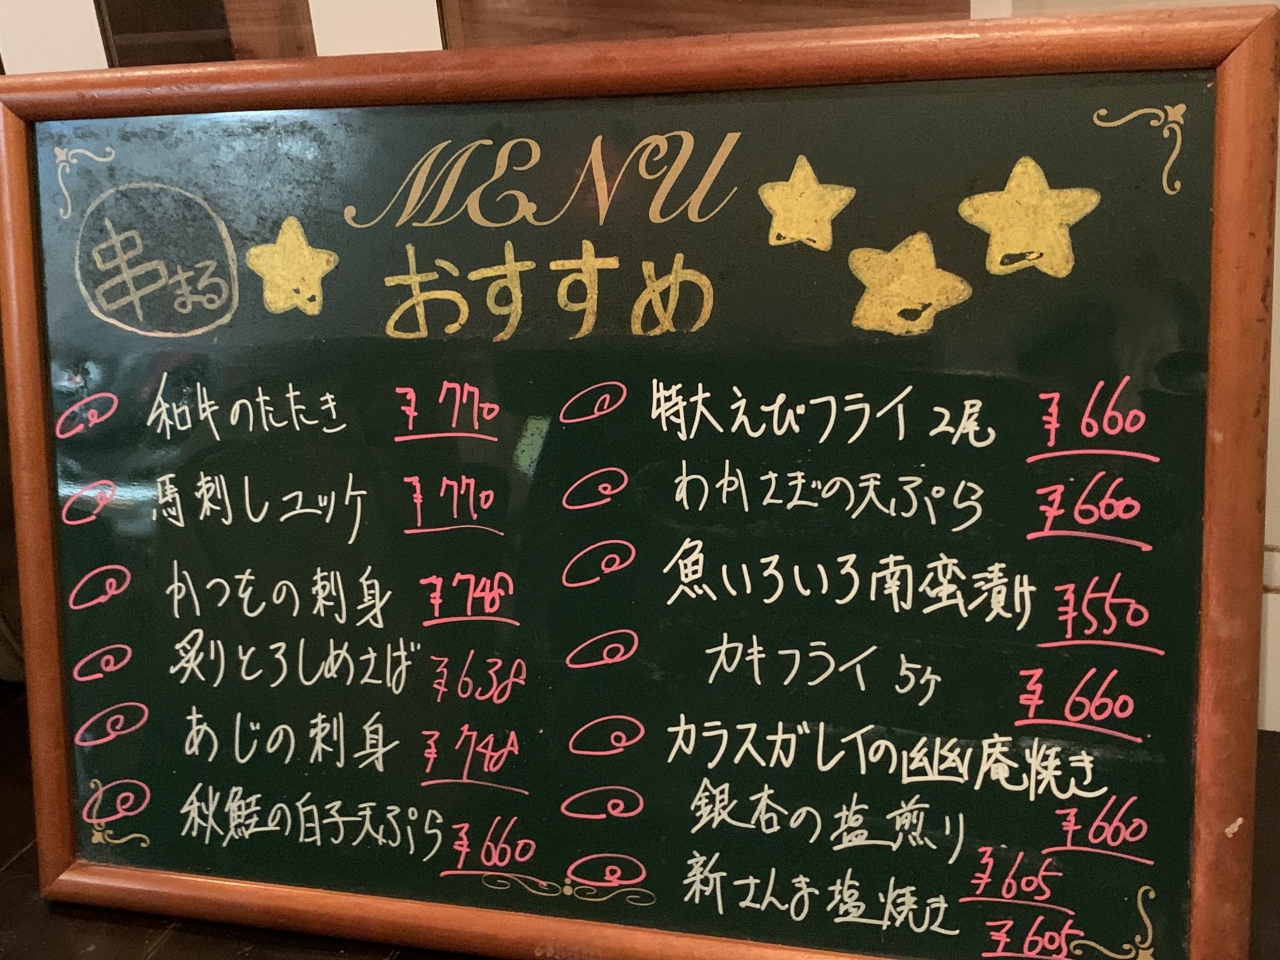 MENU
串まる
おすすめ
和牛のたたき ¥770
馬刺しユッケ ¥770
かつをの刺身 ¥748
炙りとろしめさば ¥638
あじの刺身 ¥748
秋鮭の白子天ぷら ¥660
特大えびフライ 2尾 ¥660
わかさぎの天ぷら ¥660
魚いろいろ南蛮漬け ¥550
カキフライ 5ヶ ¥660
カラスガレイの幽庵焼き ¥660
銀杏の塩煎り ¥605
新さんま塩焼き ¥605